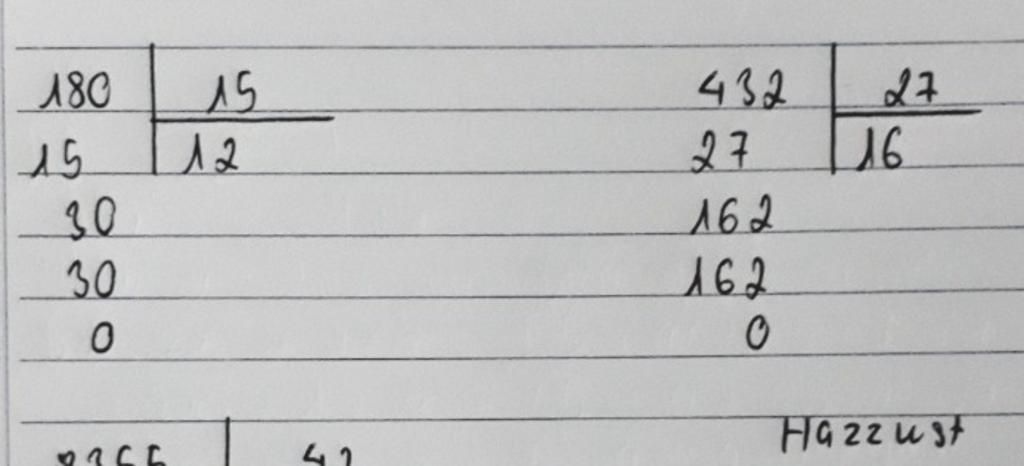 180 15 432 27
15 12 27 16
30 162
30 162
0 0
Hazzust